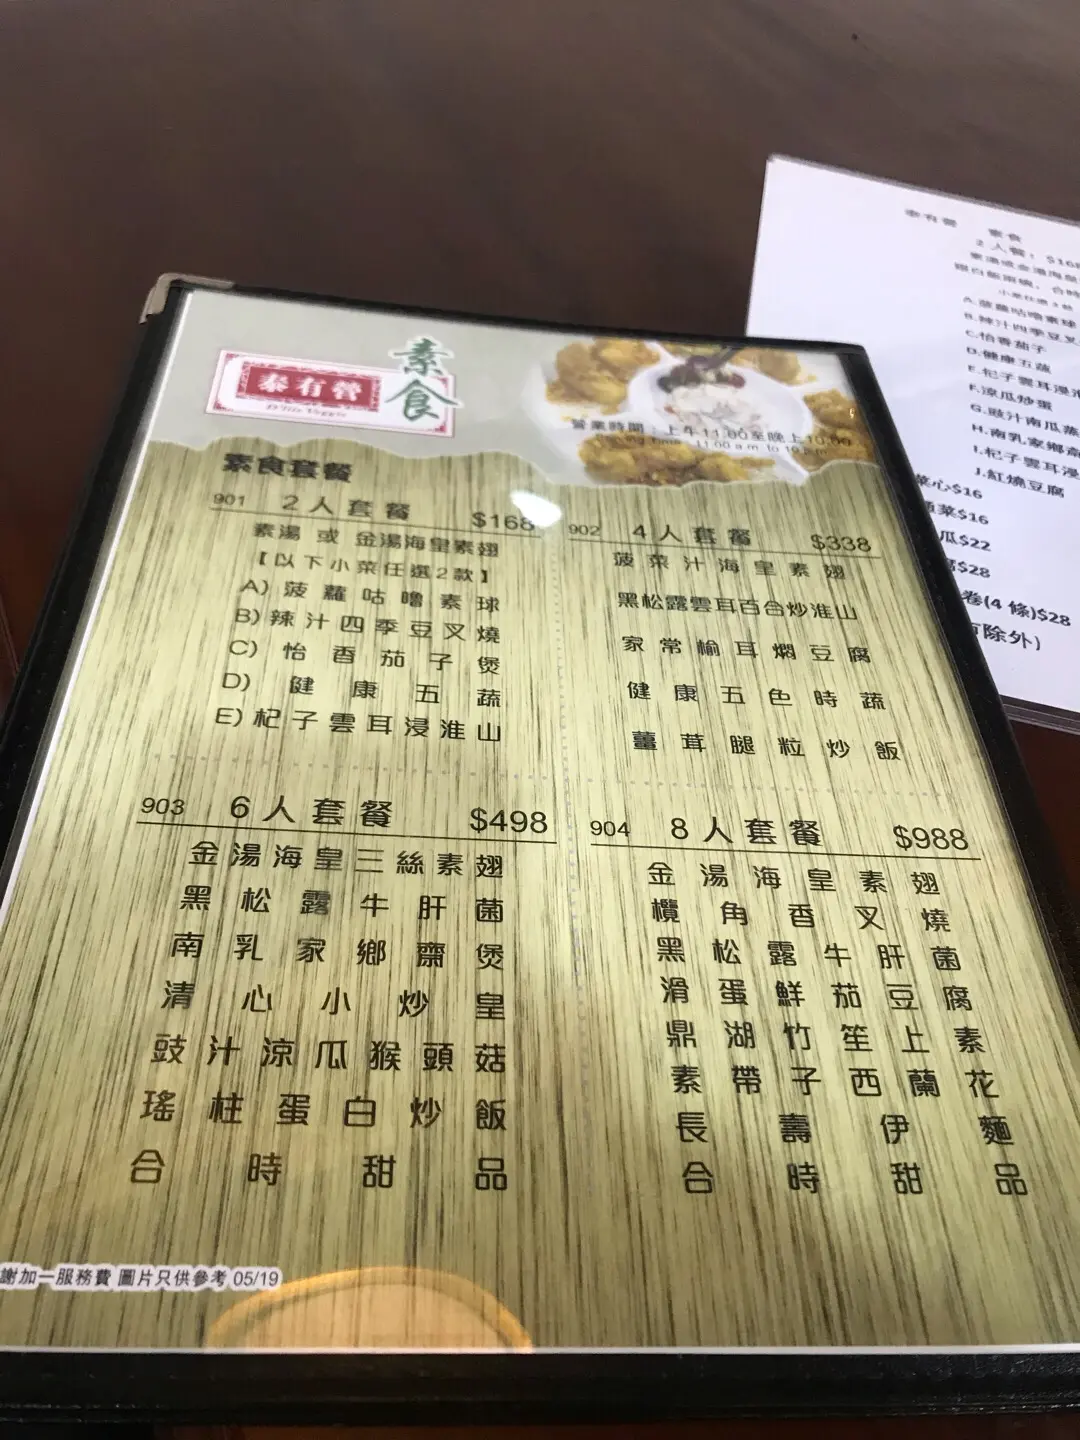 素食
泰有營
營業時間：上午11:00至晚上10:00
素食套餐
901 2人套餐 $168
素湯 或 金湯海皇素翅
【以下小菜任選2款】
A) 菠蘿咕嚕素球
B) 辣汁四季豆叉燒
C) 怡香茄子煲
D) 健康五蔬
E) 杞子雲耳浸淮山
902 4人套餐 $338
菠菜汁海皇素翅
黑松露雲耳百合炒淮山
家常榆耳燜豆腐
健康五色時蔬
薑茸腿粒炒飯
903 6人套餐 $498
金湯海皇三絲素翅
黑松露牛肝菌
南乳家鄉齋煲
清心小炒皇
豉汁涼瓜猴頭菇
瑤柱蛋白炒飯
合時甜品
904 8人套餐 $988
金湯海皇素翅
欖角香叉燒
黑松露牛肝菌
滑蛋鮮茄豆腐
鼎湖竹笙上素
素帶子西蘭花
長壽伊麵
合時甜品
謝加一服務費 圖片只供參考 05/19
泰有營 素食
2人餐：$168
A.菠蘿咕嚕素球
B.辣汁四季豆叉
C.怡香茄子
D.健康五蔬
E.杞子雲耳浸淮
F.涼瓜炒蛋
G.豉汁南瓜蒸
H.南乳家鄉齋
I.杞子雲耳浸
J.紅燒豆腐
菜心$16
菜$16
瓜$22
$28
卷(4 條)$28
除外)